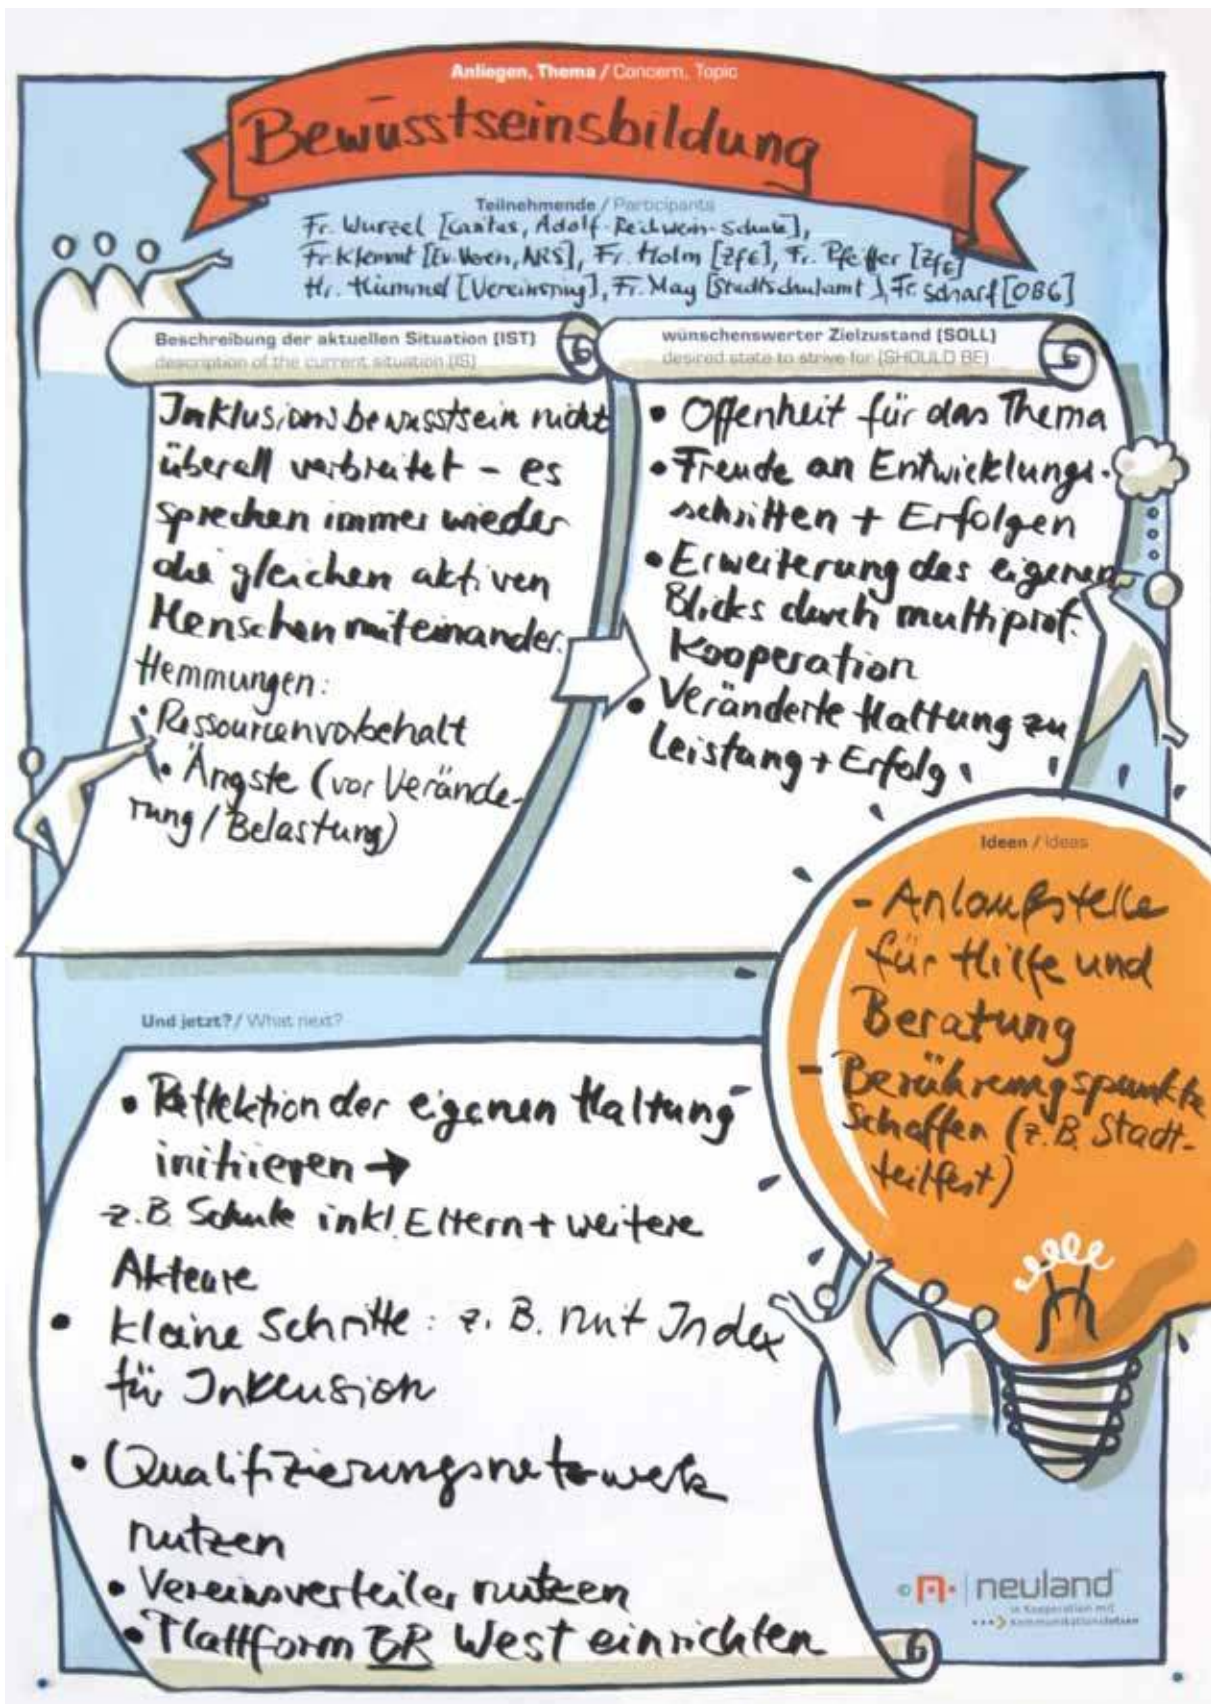 Anliegen, Thema / Concern, Topic
Bewusstseinsbildung
Teilnehmende / Participants
Fr. Wurzel [Caritas, Adolf-Reichwein-Schule],
Fr. Klemmt [Ev. Verein, ARS], Fr. Holm [ZfE], Fr. Pfeiffer [ZfE]
Hr. Kümmel [Vereinsring], Fr. May [Stadtschulamt], Fr. Scharf [OBG]
Beschreibung der aktuellen Situation (IST)
description of the current situation (IS)
Inklusionsbewusstsein nicht
überall verbreitet – es
sprechen immer wieder
die gleichen aktiven
Menschen miteinander.
Hemmungen:
• Ressourcenvorbehalt
• Ängste (vor Verände-
rung / Belastung)
wünschenswerter Zielzustand (SOLL)
desired state to strive for (SHOULD BE)
• Offenheit für das Thema
• Freude an Entwicklungs-
schritten + Erfolgen
• Erweiterung des eigenen
Blicks durch multiprof.
Kooperation
• Veränderte Haltung zu
Leistung + Erfolg
Ideen / Ideas
- Anlaufstelle
für Hilfe und
Beratung
- Berührungspunkte
schaffen (z.B. Stadt-
teilfest)
Und jetzt? / What next?
• Reflektion der eigenen Haltung
initiieren →
z.B. Schule inkl. Eltern + weitere
Akteure
• kleine Schritte: z.B. mit Index
für Inklusion
• Qualifizierungsnetzwerk
nutzen
• Vereinsverteiler nutzen
• Plattform BR West einrichten
neuland
in Kooperation mit
Kommunikationslotsen